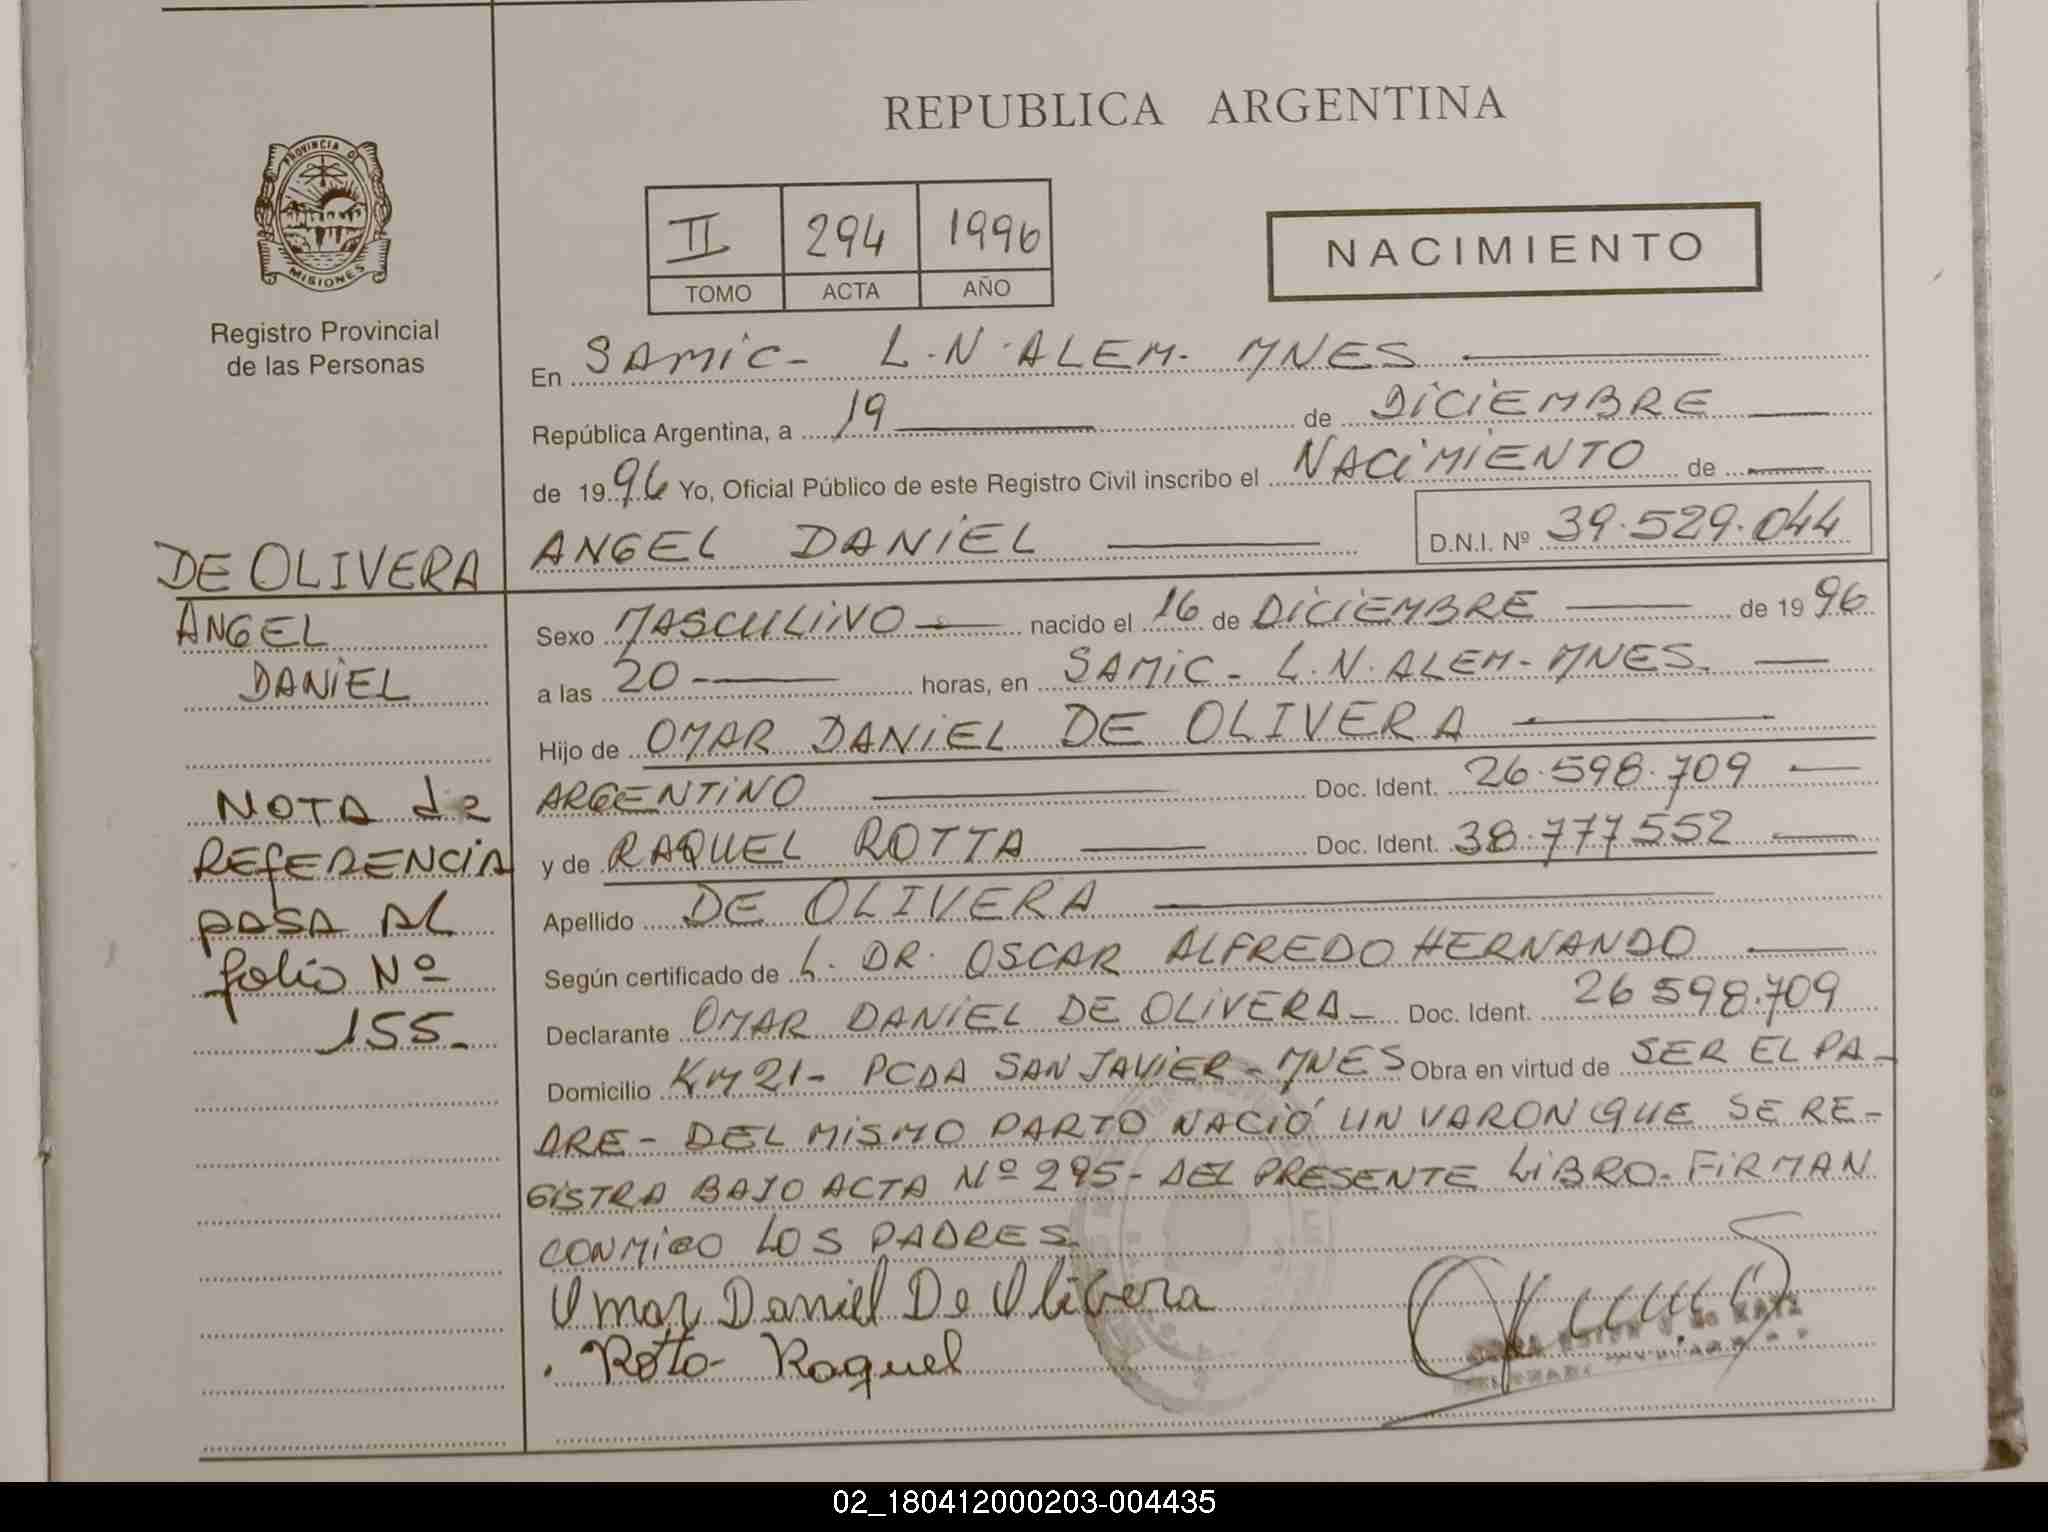 REPUBLICA ARGENTINA
PROVINCIA DE
MISIONES
Registro Provincial
de las Personas
II 294 1996
TOMO ACTA AÑO
NACIMIENTO
En SAMIC - L.N. ALEM - MNES
República Argentina, a 19 de DICIEMBRE
de 1996 Yo, Oficial Público de este Registro Civil inscribo el NACIMIENTO de
ANGEL DANIEL D.N.I. Nº 39.529.044
DE OLIVERA
ANGEL
DANIEL
NOTA de
REFERENCIA
PASA AL
folio Nº
155-
Sexo MASCULINO nacido el 16 de DICIEMBRE de 1996
a las 20 horas, en SAMIC - L.N. ALEM - MNES.
Hijo de OMAR DANIEL DE OLIVERA
ARGENTINO Doc. Ident. 26.598.709
y de RAQUEL ROTTA Doc. Ident. 38.777552
Apellido DE OLIVERA
Según certificado de L. DR. OSCAR ALFREDO HERNANDO
Declarante OMAR DANIEL DE OLIVERA - Doc. Ident. 26 598.709
Domicilio KM 21 - PCDA SAN JAVIER - MNES Obra en virtud de SER EL PA-
DRE - DEL MISMO PARTO NACIÓ UN VARON QUE SE RE-
GISTRA BAJO ACTA Nº 295 - DEL PRESENTE LIBRO - FIRMAN
CONMIGO LOS PADRES
Omar Daniel De Olibera
Rotta - Raquel
02_180412000203-004435